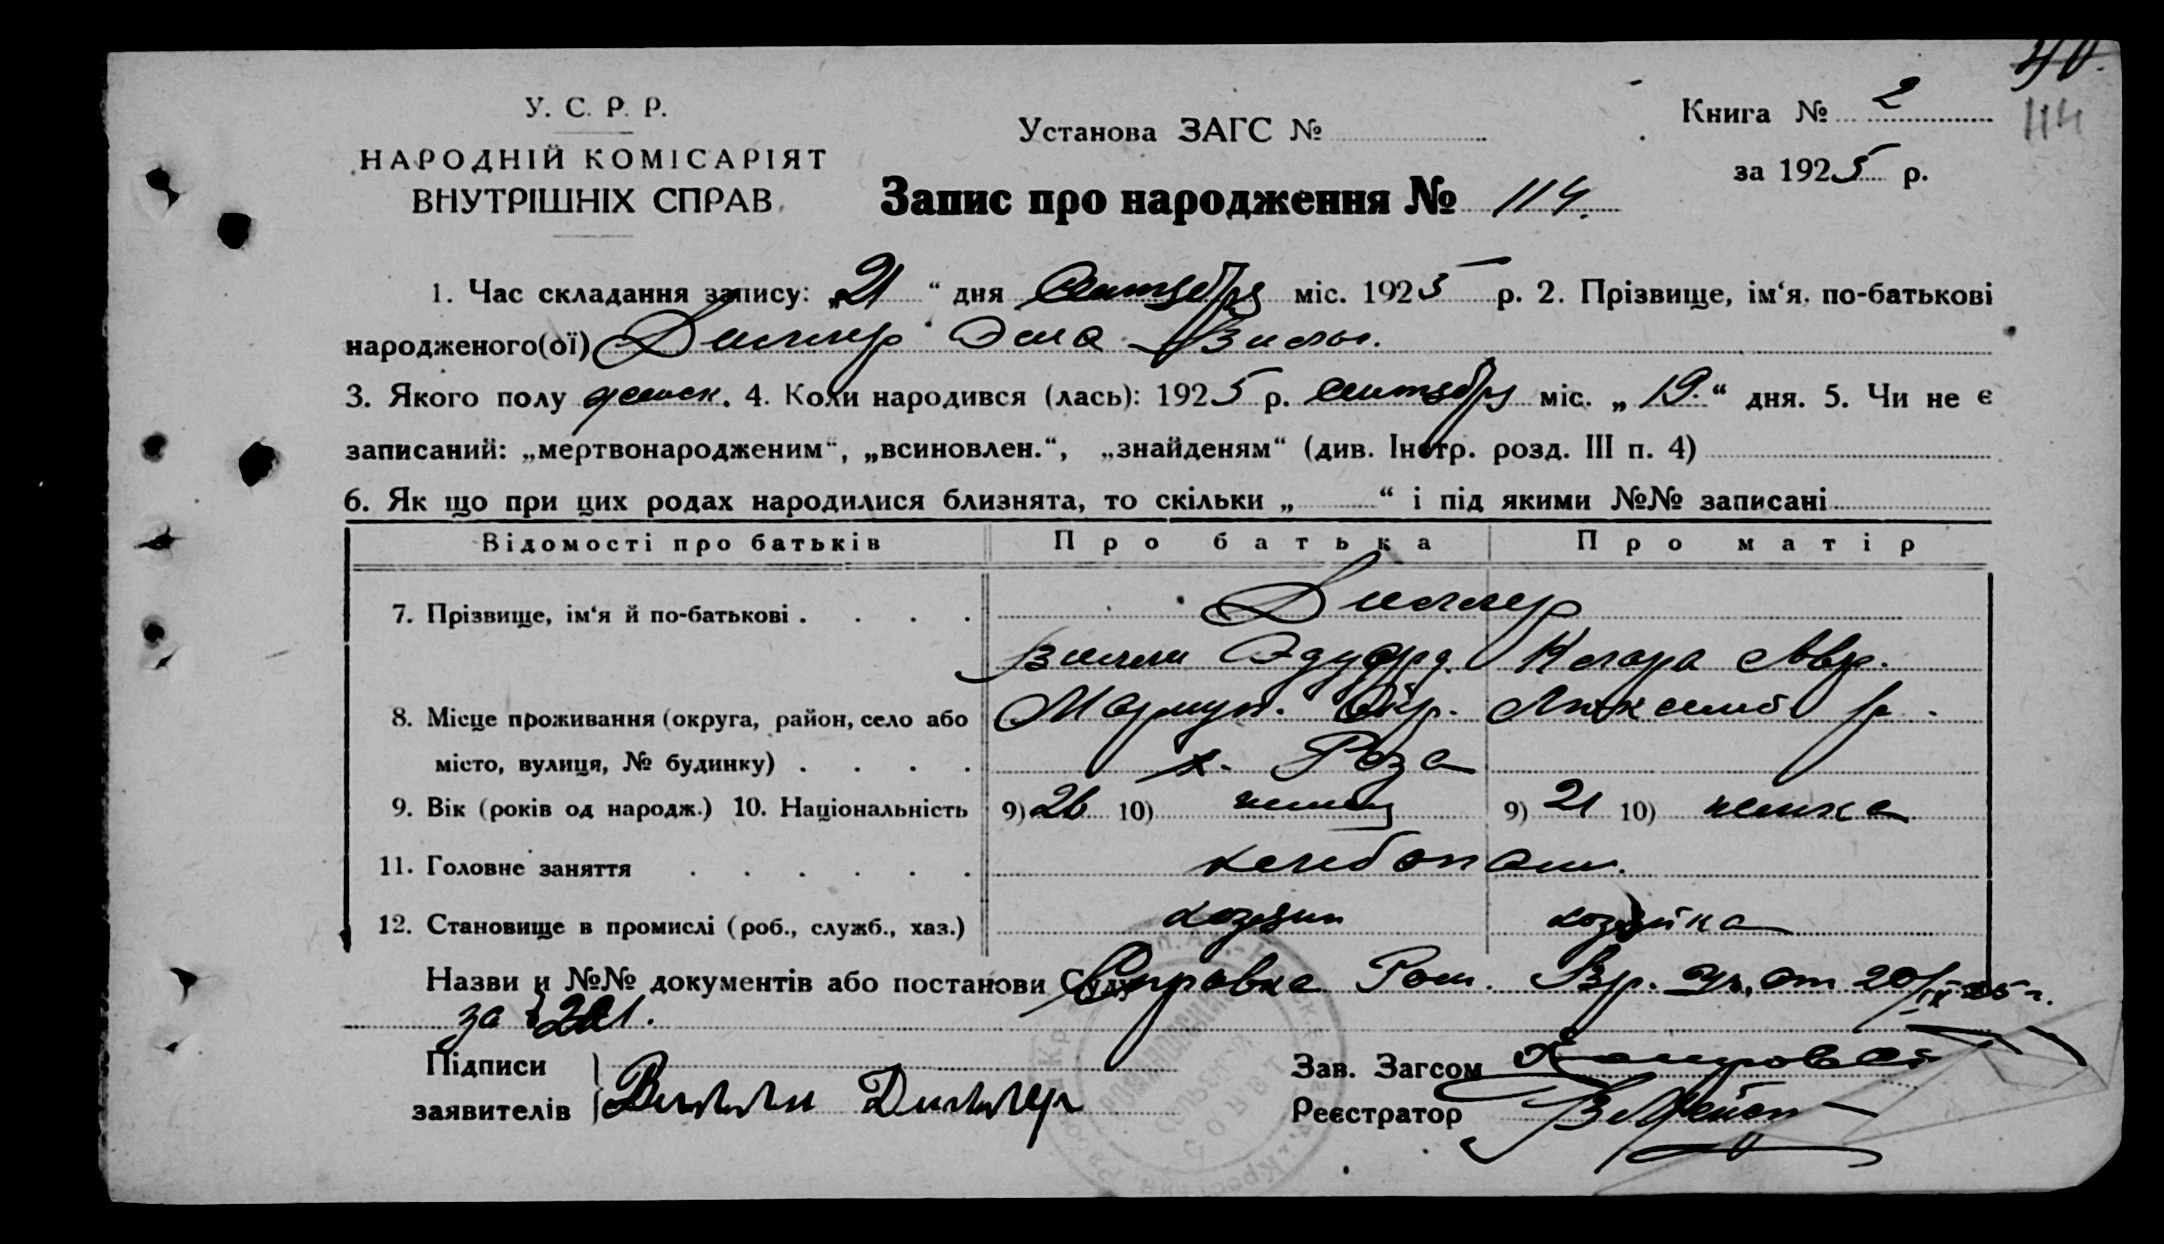 40.
114
У. С. Р. Р.
НАРОДНІЙ КОМІСАРІЯТ
ВНУТРІШНІХ СПРАВ
Установа ЗАГС №
Книга № 2
за 1925 р.
Запис про народження № 114.
1. Час складання запису: „21“ дня Сентября міс. 1925 р. 2. Прізвище, ім‘я, по-батькові
народженого(ої) Диллер Элла Вилли.
3. Якого полу женск. 4. Коли народився (лась): 1925 р. сентября міс. „19.“ дня. 5. Чи не є
записаний: „мертвонародженим“, „всиновлен.“, „знайденям“ (див. Інстр. розд. III п. 4)
6. Як що при цих родах народилися близнята, то скільки „ “ і під якими №№ записані
Відомості про батьків Про батька Про матір
7. Прізвище, ім‘я й по-батькові . . . . Диллер
Вилли Эдуард. Клара
8. Місце проживання (округа, район, село або Мариуп. Окр. р.
місто, вулиця, № будинку) . . . . х. Роза
9. Вік (років од народж.) 10. Національність 9) 26 10) немец 9) 21 10) немка
11. Головне заняття . . . . . . хлебопаш.
12. Становище в промислі (роб., служб., хаз.) хозяин хозяйка
Назви и №№ документів або постанови Суду Справка от 20/IX 25 г.
за 221.
Підписи
заявителів Вилли Диллер
Зав. Загсом
Реєстратор